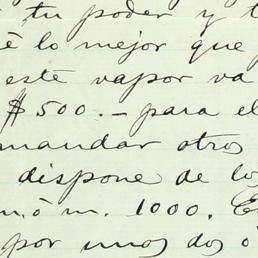 tu poder y t
é lo mejor que
este vapor va
$500.— para el
mandar otros
dispone de los
m. ó m. 1000. E
por unos dos ó